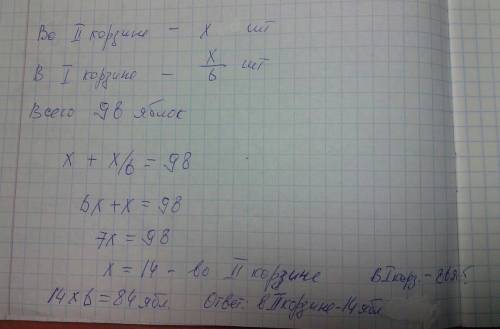 Во II корзине – x шт
В I корзине – x/6 шт
Всего 98 яблок
x + x/6 = 98
6x + x = 98
7x = 98
x = 14 – во II корзине В I корз. –
14 x 6 = 84 ябл. Ответ: в II корзине – 14 ябл